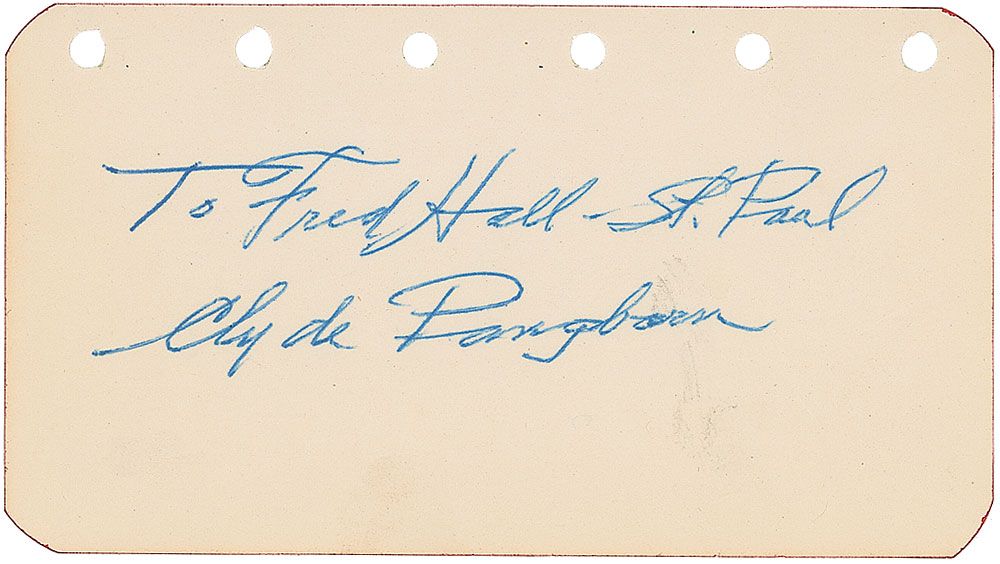 To Fred Hall - St. Paul
Clyde Pangborn